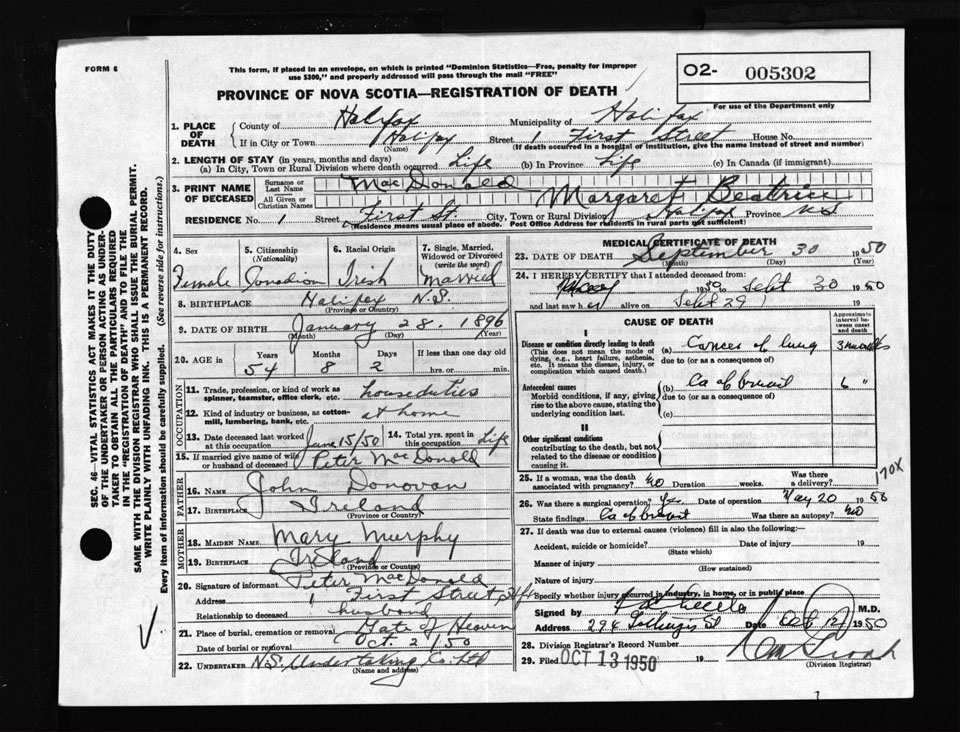 FORM 6
This form, if placed in an envelope, on which is printed "Dominion Statistics—Free, penalty for improper
use $300," and properly addressed will pass through the mail "FREE"
PROVINCE OF NOVA SCOTIA—REGISTRATION OF DEATH
O2- 005302
For use of the Department only
1. PLACE OF DEATH County of Halifax Municipality of Halifax
If in City or Town Halifax (Name) Street 1 First Street House No.
(If death occurred in a hospital or institution, give the name instead of street and number)
2. LENGTH OF STAY (in years, months and days)
(a) In City, Town or Rural Division where death occurred Life (b) In Province Life (c) In Canada (if immigrant)
3. PRINT NAME OF DECEASED Surname or Last Name MacDonald
All Given or Christian Names Margaret Beatrice
RESIDENCE No. 1 Street First St. City, Town or Rural Division Halifax Province N.S
(Residence means usual place of abode. Post Office Address for residents in rural parts not sufficient)
4. Sex Female
5. Citizenship (Nationality) Canadian
6. Racial Origin Irish
7. Single, Married, Widowed or Divorced (write the word) Married
8. BIRTHPLACE Halifax N.S.
(Province or Country)
9. DATE OF BIRTH January 28. 1896
(Month) (Day) (Year)
10. AGE in Years 54 Months 8 Days 2 If less than one day old hrs. or min.
OCCUPATION
11. Trade, profession, or kind of work as spinner, teamster, office clerk, etc. houseduties
12. Kind of industry or business, as cotton-mill, lumbering, bank, etc. at home
13. Date deceased last worked at this occupation June 15/50 14. Total yrs. spent in this occupation Life
15. If married give name of wife or husband of deceased Peter MacDonald
FATHER
16. NAME John Donovan
17. BIRTHPLACE Ireland
(Province or Country)
MOTHER
18. MAIDEN NAME Mary Murphy
19. BIRTHPLACE Ireland
(Province or Country)
20. Signature of informant Peter MacDonald
Address 1 First Street
Relationship to deceased husband
21. Place of burial, cremation or removal Gate of Heaven
Date of burial or removal Oct. 2/50
22. UNDERTAKER N.S. Undertaking Co. Ltd
(Name and address)
MEDICAL CERTIFICATE OF DEATH
23. DATE OF DEATH September 30 1950
(Month) (Day) (Year)
24. I HEREBY CERTIFY that I attended deceased from:
1950 to Sept 30 1950
and last saw her alive on Sept 29
CAUSE OF DEATH
Approximate interval between onset and death
I
Disease or condition directly leading to death (a) Cancer of lung 3 months
(This does not mean the mode of dying, e.g., heart failure, asthenia, etc. It means the disease, injury, or complication which caused death.)
due to (or as a consequence of)
Antecedent causes (b) Ca of breast 6 "
Morbid conditions, if any, giving rise to the above cause, stating the underlying condition last.
due to (or as a consequence of)
(c)
II
Other significant conditions
contributing to the death, but not related to the disease or condition causing it.
25. If a woman, was the death associated with pregnancy? No Duration weeks. Was there a delivery?
170X
26. Was there a surgical operation? Yes Date of operation May 20 1950
State findings Ca of breast Was there an autopsy? No
27. If death was due to external causes (violence) fill in also the following:—
Accident, suicide or homicide? Date of injury 19
(State which)
Manner of injury
(How sustained)
Nature of injury
Specify whether injury occurred in industry, in home, or in public place
Signed by M.D.
Address 294 St Date 1950
28. Division Registrar's Record Number
29. Filed OCT 13 1950 19
(Division Registrar)
SEC. 46—VITAL STATISTICS ACT MAKES IT THE DUTY
OF THE UNDERTAKER OR PERSON ACTING AS UNDERTAKER TO OBTAIN ALL THE PARTICULARS REQUIRED
IN THE "REGISTRATION OF DEATH" AND TO FILE THE
SAME WITH THE DIVISION REGISTRAR WHO SHALL ISSUE THE BURIAL PERMIT.
WRITE PLAINLY WITH UNFADING INK. THIS IS A PERMANENT RECORD.
Every item of information should be carefully supplied. (See reverse side for instructions.)